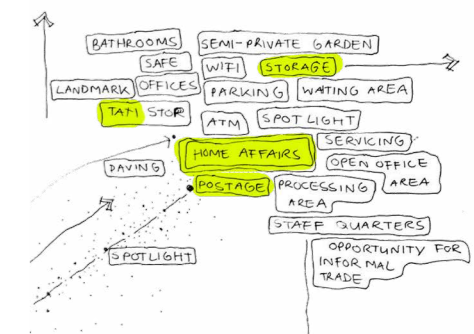 BATHROOMS SEMI-PRIVATE GARDEN
SAFE WIFI STORAGE
LANDMARK OFFICES PARKING WATING AREA
TAXI STOP
ATM SPOTLIGHT
SERVICING
HOME AFFAIRS
OPEN OFFICE
AREA
DAVING
POSTAGE PROCESSING
AREA
STAFF QUARTERS
SPOTLIGHT
OPPORTUNITY FOR
INFORMAL
TRADE